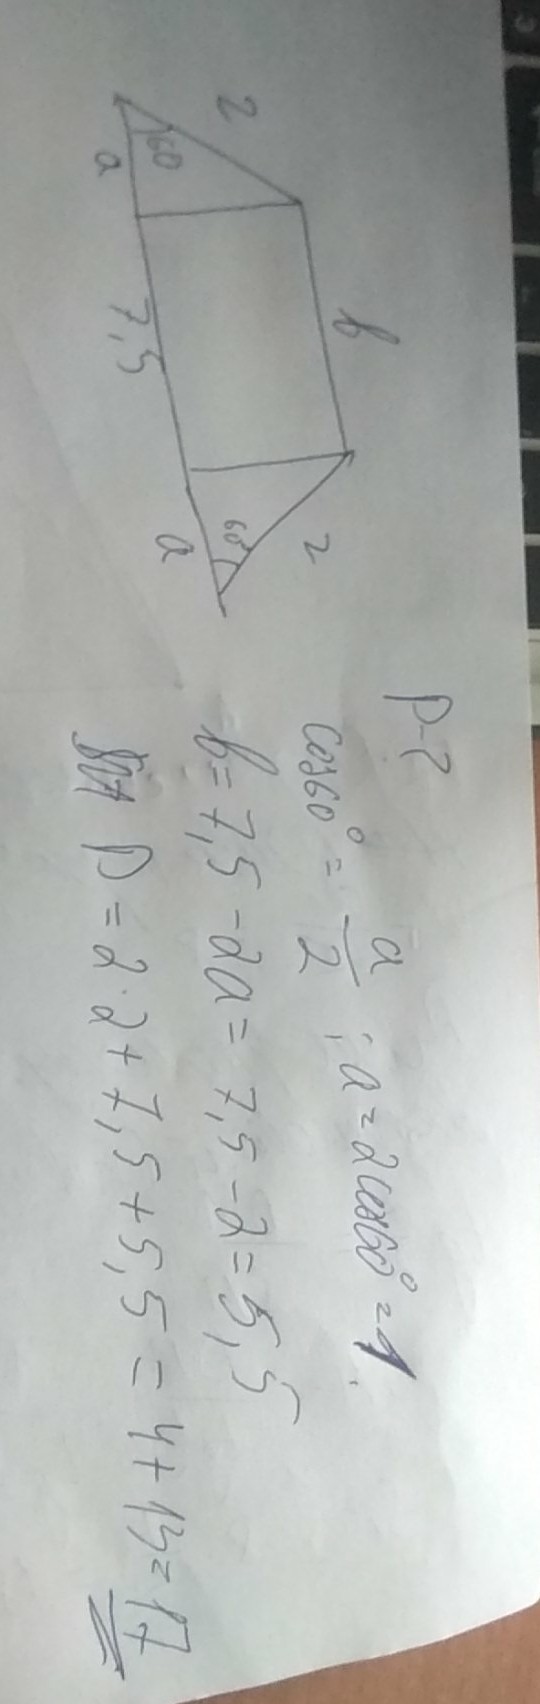 2
60
a
b
7,5
60
2
a
P-?
cos60° = a/2 ; a=2cos60°=1.
b=7,5-2a=7,5-2=5,5
P=2·2+7,5+5,5=4+13=17